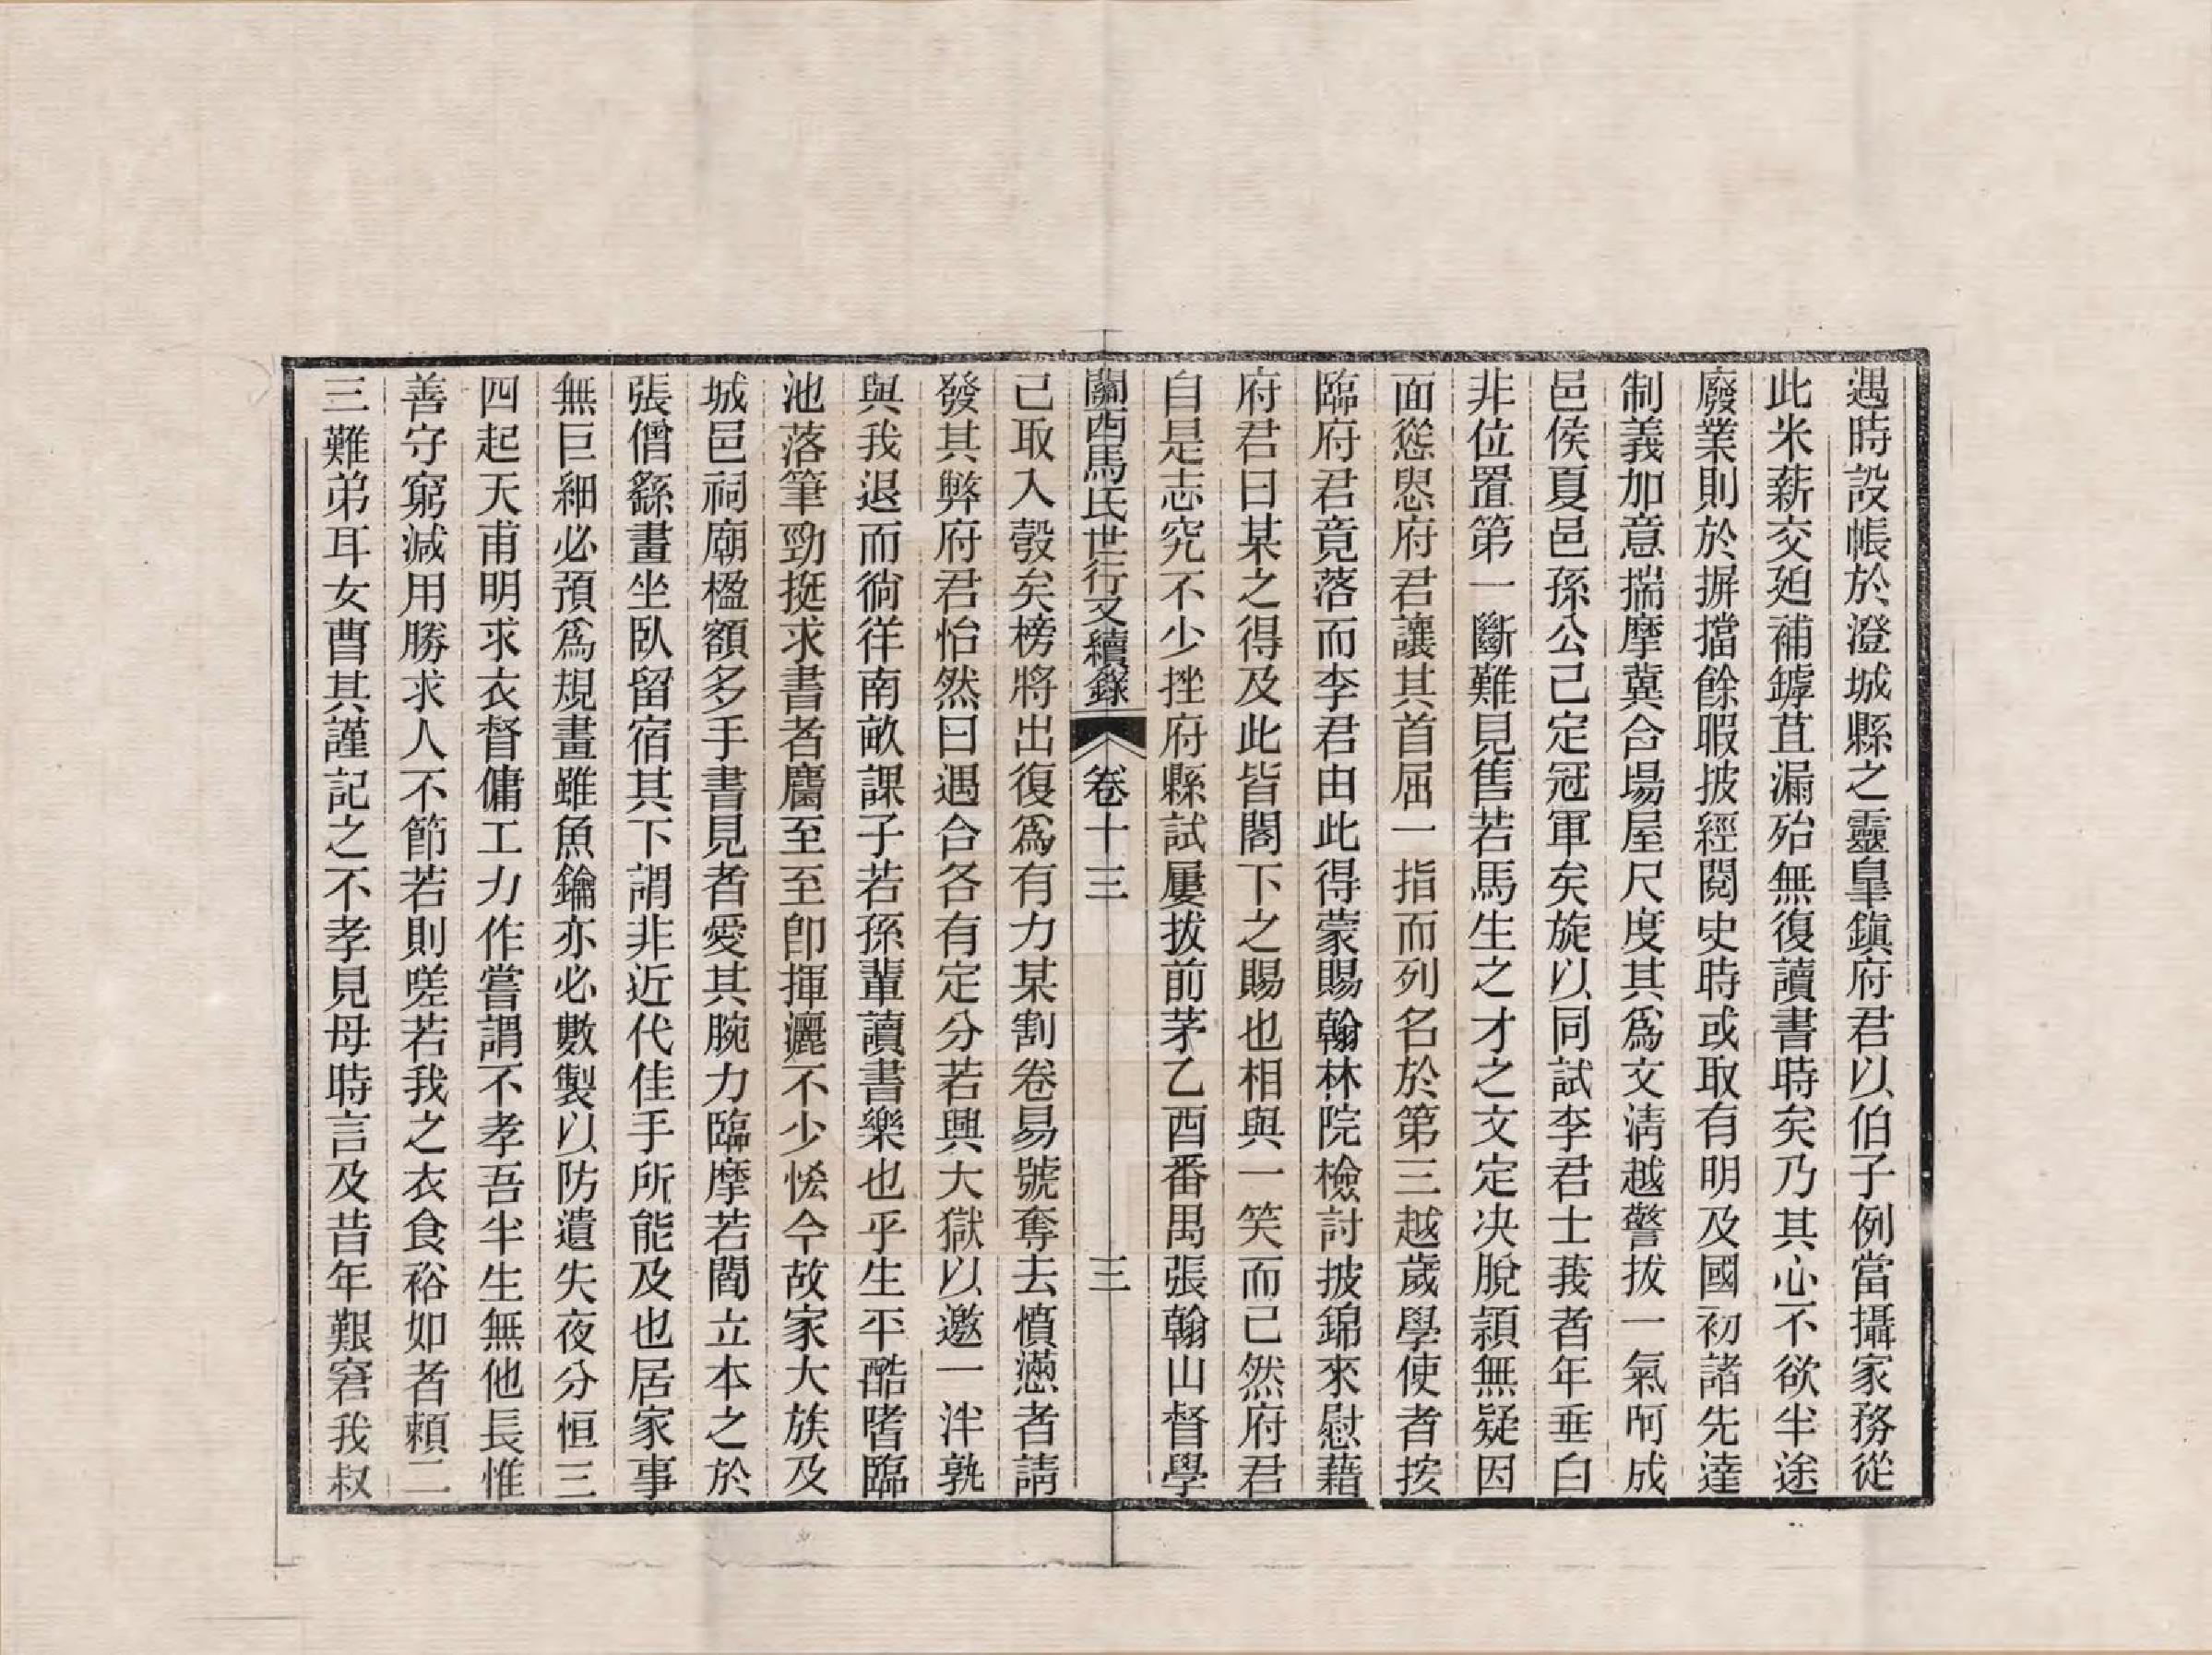 遇時設帳於澄城縣之靈臯鎭府君以伯子例當攝家務從
此米薪交廹補罅苴漏殆無復讀書時矣乃其心不欲半途
廢業則於摒擋餘暇披經閱史時或取有明及國初諸先達
制義加意揣摩冀合場屋尺度其爲文淸越警拔一氣呵成
邑侯夏邑孫公己定冠軍矣旋以同試李君士莪者年垂白
非位置第一斷難見售若馬生之才之文定决脫穎無疑因
面慫恩府君讓其首屈一指而列名於第三越歲學使者按
臨府君竟落而李君由此得蒙賜翰林院檢討披錦來慰藉
府君曰某之得及此皆閣下之賜也相與一笑而已然府君
自是志究不少挫府縣試屢拔前茅乙酉番禺張翰山督學
關西馬氏世行文續錄 卷十三 三
己取入彀矣榜將出復爲有力某割卷易號奪去憤懣者請
發其弊府君怡然曰遇合各有定分若興大獄以邀一泮孰
與我退而徜徉南畝課子若孫輩讀書樂也乎生平酷嗜臨
池落筆勁挺求書者麕至至卽揮灑不少恡今故家大族及
城邑祠廟楹額多手書見者愛其腕力臨摩若閻立本之於
張僧繇畫坐臥留宿其下謂非近代佳手所能及也居家事
無巨細必預爲規畫雖魚鑰亦必數製以防遺失夜分恒三
四起天甫明求衣督傭工力作嘗謂不孝吾半生無他長惟
善守窮減用勝求人不節若則嗟若我之衣食裕如者賴二
三難弟耳女曹其謹記之不孝見母時言及昔年艱窘我叔